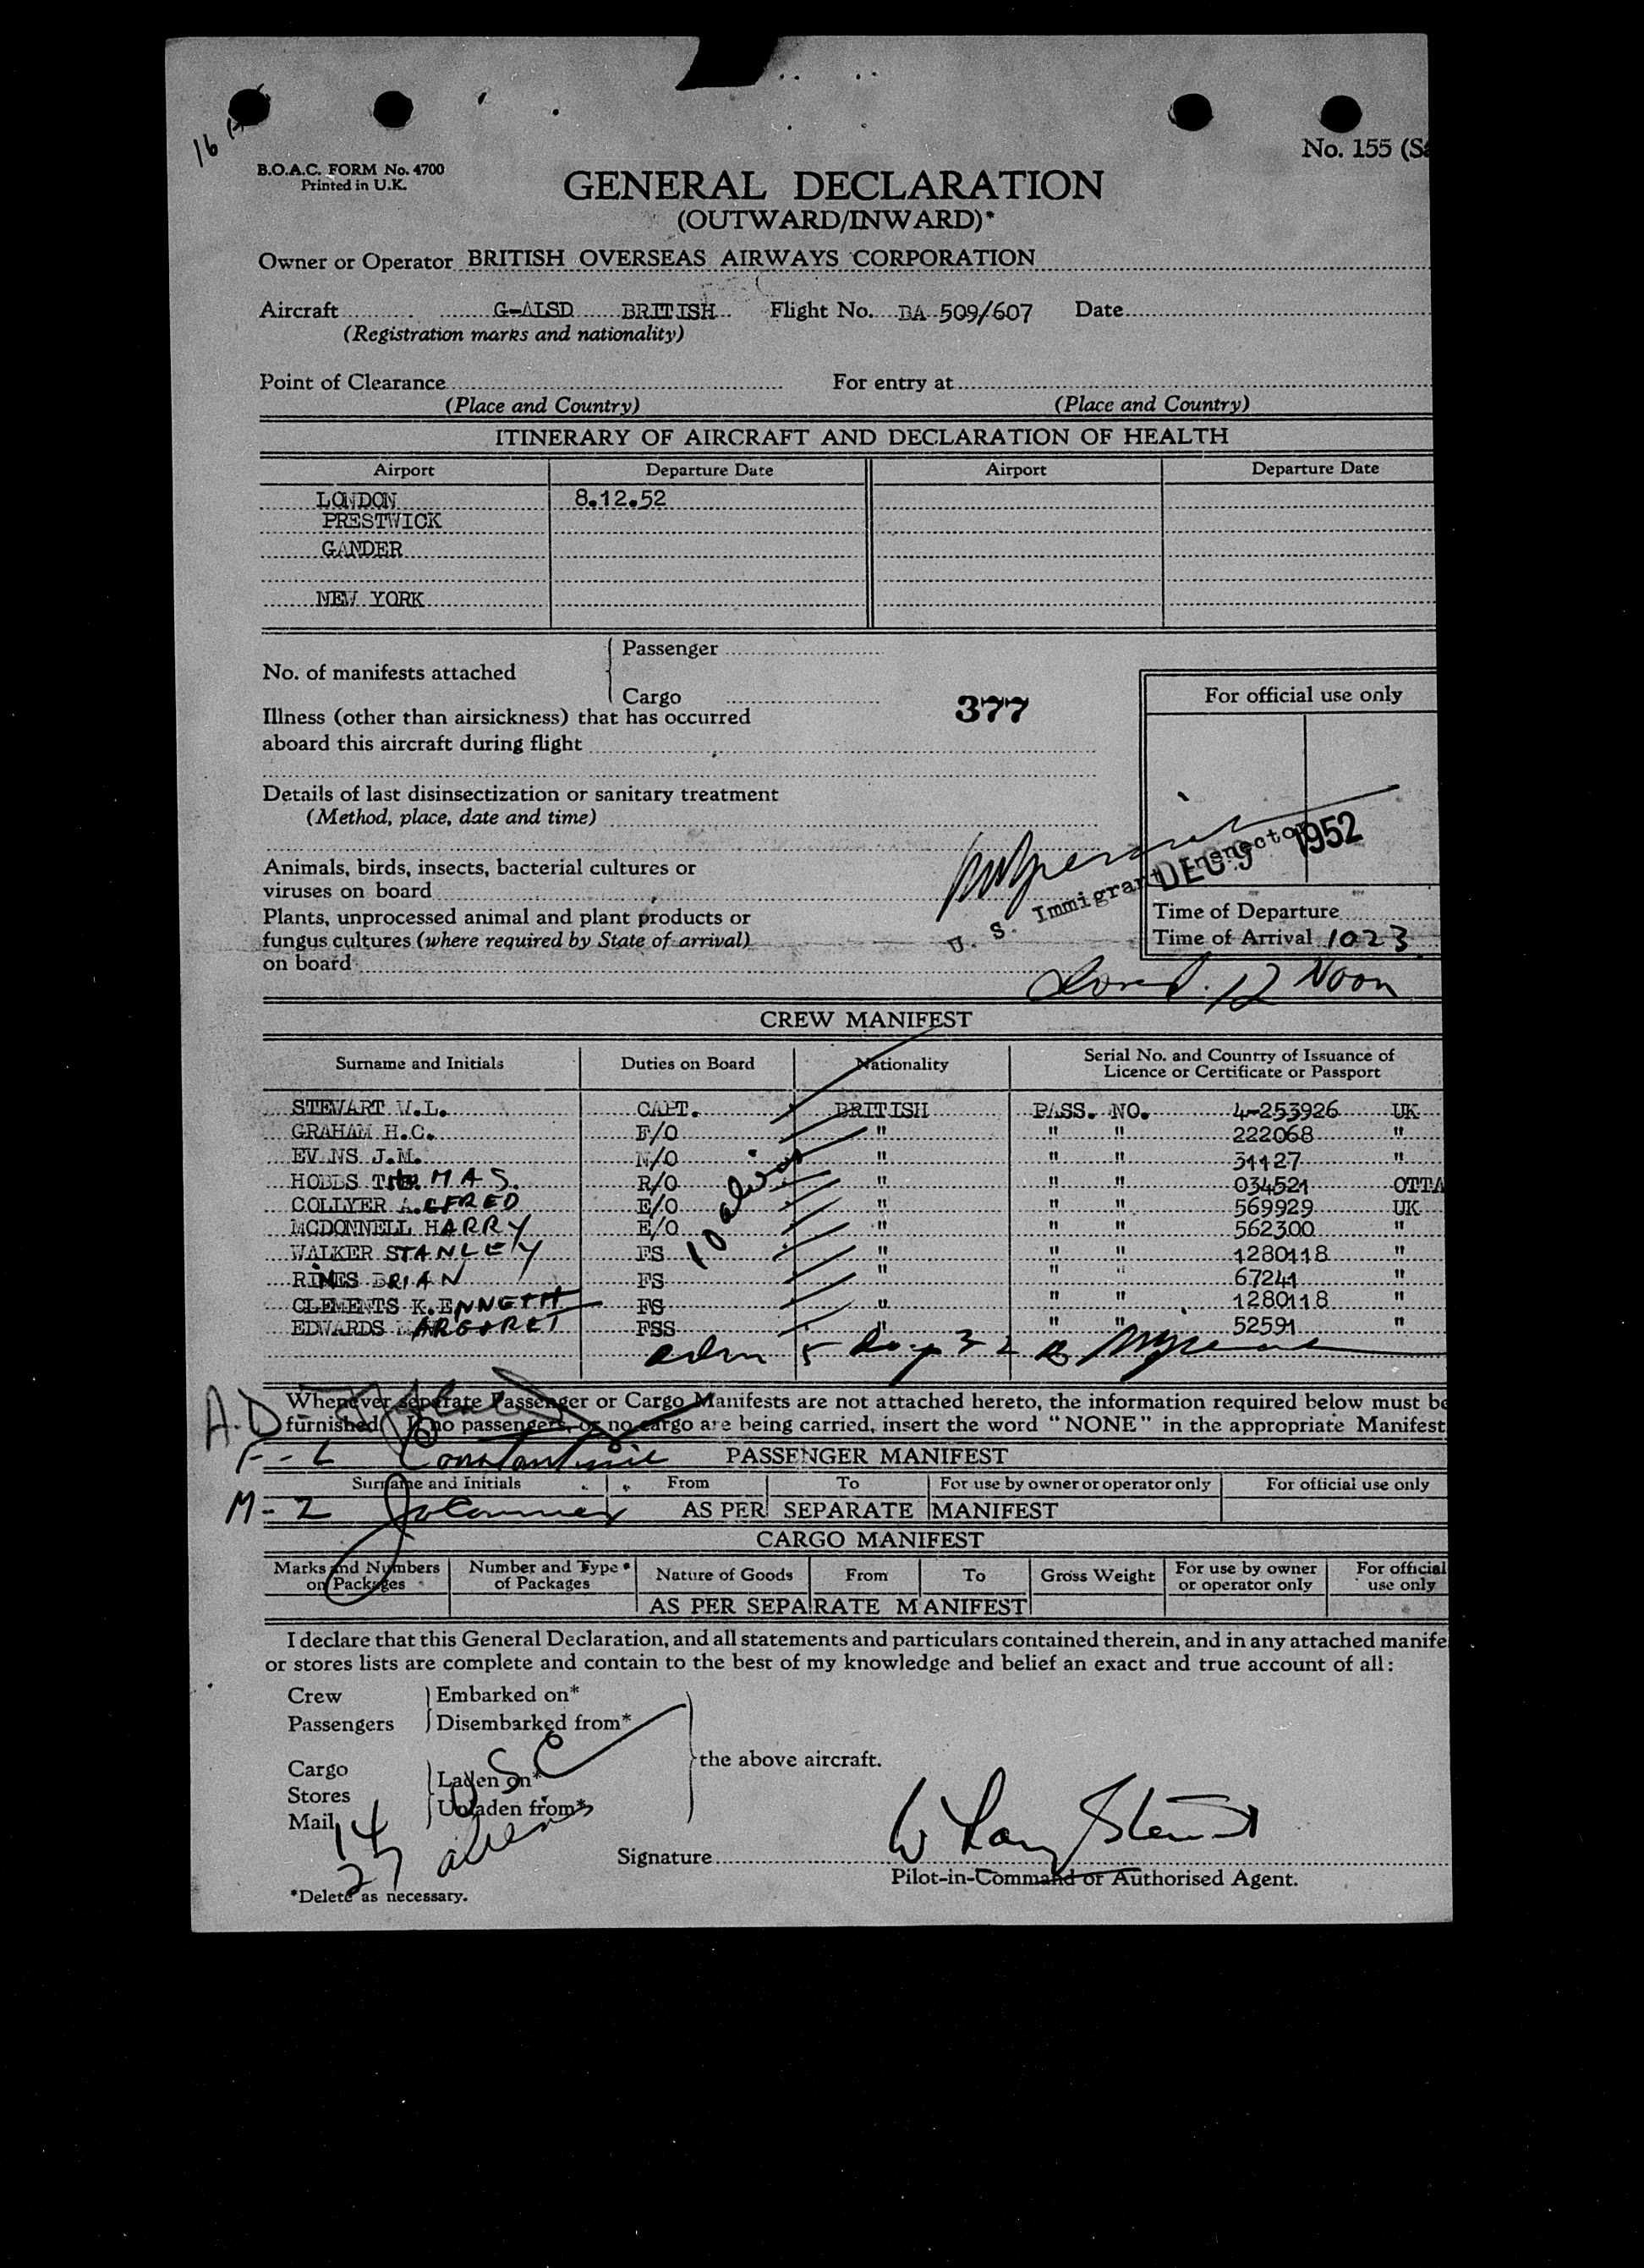 No. 155
B.O.A.C. FORM No. 4700
Printed in U.K.
GENERAL DECLARATION
(OUTWARD/INWARD)*
Owner or Operator BRITISH OVERSEAS AIRWAYS CORPORATION
Aircraft G-ALSD BRITISH Flight No. BA 509/607 Date
(Registration marks and nationality)
Point of Clearance For entry at
(Place and Country) (Place and Country)
ITINERARY OF AIRCRAFT AND DECLARATION OF HEALTH
Airport Departure Date Airport Departure Date
LONDON 8.12.52
PRESTWICK
GANDER
NEW YORK
No. of manifests attached
Passenger
Cargo
377
For official use only
Illness (other than airsickness) that has occurred
aboard this aircraft during flight
Details of last disinsectization or sanitary treatment
(Method, place, date and time)
DEC 9 1952
U. S. Immigrant Inspector
Animals, birds, insects, bacterial cultures or
viruses on board
Plants, unprocessed animal and plant products or
fungus cultures (where required by State of arrival)
on board
Time of Departure
Time of Arrival 1023
12 Noon
CREW MANIFEST
Surname and Initials Duties on Board Nationality Serial No. and Country of Issuance of
Licence or Certificate or Passport
STEWART W.L. CAPT. BRITISH PASS. NO. 4-253926 UK
GRAHAM H.C. F/O " " " 222068 "
EV NS J.M. N/O " " " 31127 "
HOBBS THOMAS. R/O " " " 034521 OTTA
COLLYER ALFRED E/O " " " 569929 UK
MCDONNELL HARRY E/O " " " 562300 "
WALKER STANLEY FS " " " 1280118 "
RIMES BRIAN FS " " " 67241 "
CLEMENTS K.ENNETH FS " " " 1280118 "
EDWARDS MARGARET FSS " " " 52591 "
10 aliens
Whenever separate Passenger or Cargo Manifests are not attached hereto, the information required below must be
furnished. If no passengers, or no cargo are being carried, insert the word "NONE" in the appropriate Manifest
A.D
F-L Constantine
PASSENGER MANIFEST
Surname and Initials From To For use by owner or operator only For official use only
M-2
AS PER SEPARATE MANIFEST
CARGO MANIFEST
Marks and Numbers on Packages Number and Type of Packages Nature of Goods From To Gross Weight For use by owner or operator only For official use only
AS PER SEPARATE MANIFEST
I declare that this General Declaration, and all statements and particulars contained therein, and in any attached manife
or stores lists are complete and contain to the best of my knowledge and belief an exact and true account of all:
Crew Embarked on*
Passengers Disembarked from*
the above aircraft.
Cargo
Stores
Mail
Laden on*
Unladen from*
14 USC
27 aliens
Signature
Pilot-in-Command or Authorised Agent.
*Delete as necessary.